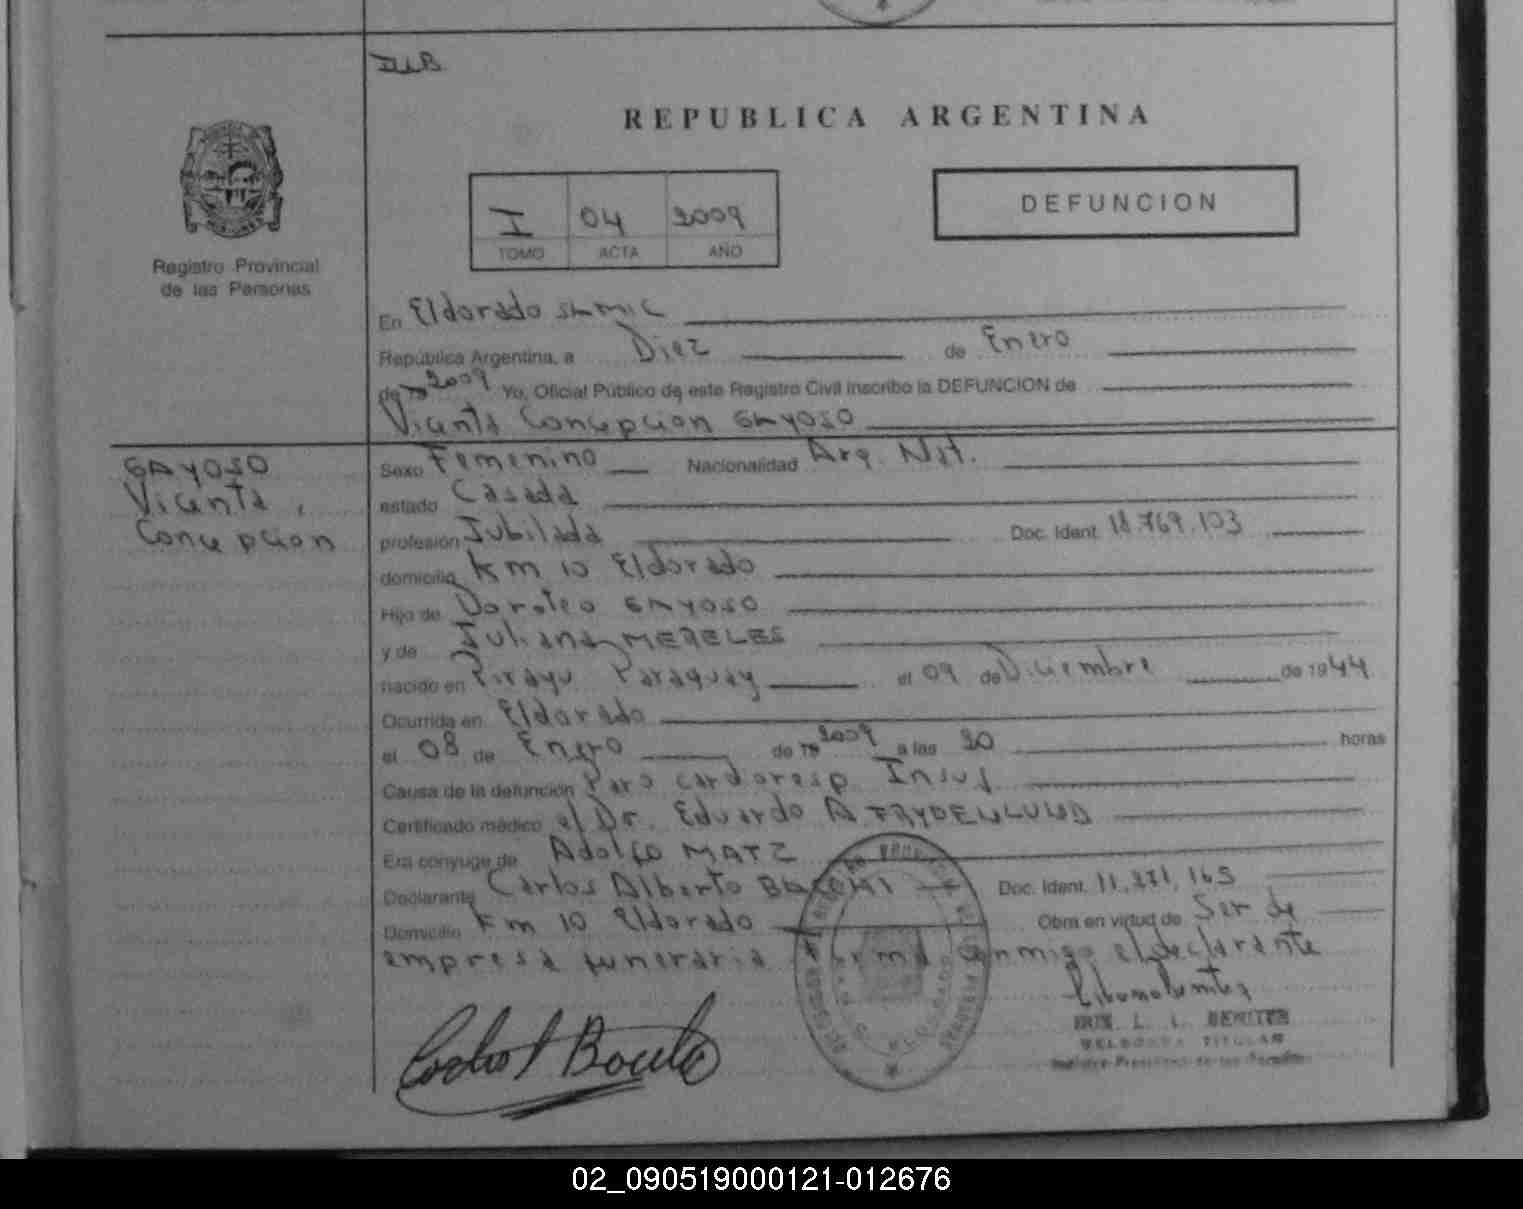 REPUBLICA ARGENTINA
I 04 2009
TOMO ACTA AÑO
DEFUNCION
Registro Provincial
de las Personas
En Eldorado
República Argentina, a Diez de Enero
de 19 2009 Yo, Oficial Público de este Registro Civil inscribo la DEFUNCION de
Vicenta Concepcion GAYOSO
GAYOSO
Vicenta,
Concepcion
Sexo Femenino Nacionalidad Arg. Nat.
estado Casada
profesión Jubilada Doc. Ident. 18.769.103
domicilio Km 10 Eldorado
Hijo de Doroteo GAYOSO
y de Juliana MERELES
nacido en Pirayu Paraguay el 09 de Diciembre de 1944
Ocurrida en Eldorado
el 08 de Enero de 19 2009 a las 20 horas
Causa de la defunción Paro cardoresp. Insuf
Certificado médico el Dr. Eduardo A FRYDENLUND
Era conyuge de Adolfo MATZ
Declarante Carlos Alberto Doc. Ident. 11.271.165
Domicilio Km 10 Eldorado Obra en virtud de Ser de
empresa funeraria firma conmigo el declarante
02_090519000121-012676